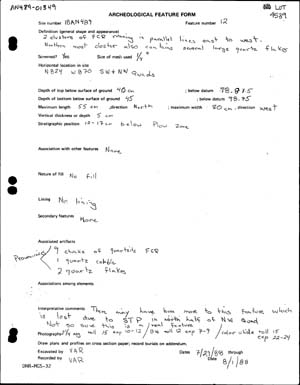 AN489-01349
LOT
9589
ARCHEOLOGICAL FEATURE FORM
Site number 18AN489 Feature number 12
Definition (general shape and appearance)
2 clusters of FCR running in parallel lines east to west.
Northern most cluster also contains several large quartz flakes
Screened? Yes Size of mesh used 1/4
Horizontal location in site
N824 W870 SW + NW Quads
Depth of top below surface of ground 40 cm ; below datum 98.815
Depth of bottom below surface of ground 45 ; below datum 98.75
Maximum length 55 cm , direction North ; maximum width 80 cm , direction west
Vertical thickness or depth 5 cm
Stratigraphic position 10-17 cm below Plow zone
Association with other features None
Nature of fill No fill
Lining No lining
Secondary features None
Associated artifacts
9 chunks of quartzite FCR
1 quartz cobble
2 quartz flakes
Associations among elements
Interpretive comments There may have been more to this feature which
is lost due to STP in north half of NW Quad
Not so sure this is a real feature
Photographs roll 15 exp 10-12 / B+W roll 12 exp 7-9 / color slide roll 15
exp 22-24
Draw plans and profiles on cross section paper; record burials on addendum.
Excavated by VAR Dates 7/23/88 through
Recorded by VAR Date 8/1/88
DNR-MGS-32